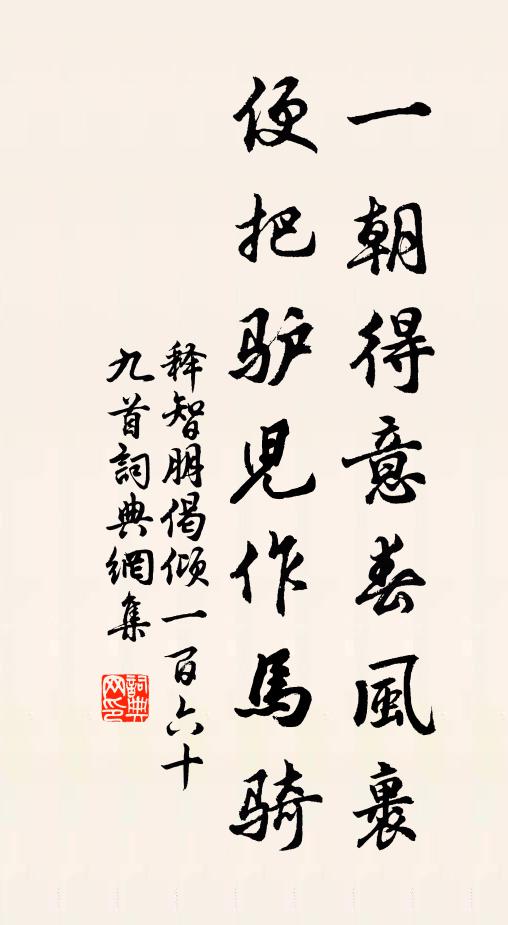 一朝得意春風裏
便把驴兒作馬騎
释智朋偈倾一百六十
九首詞典網集
詞典
网印